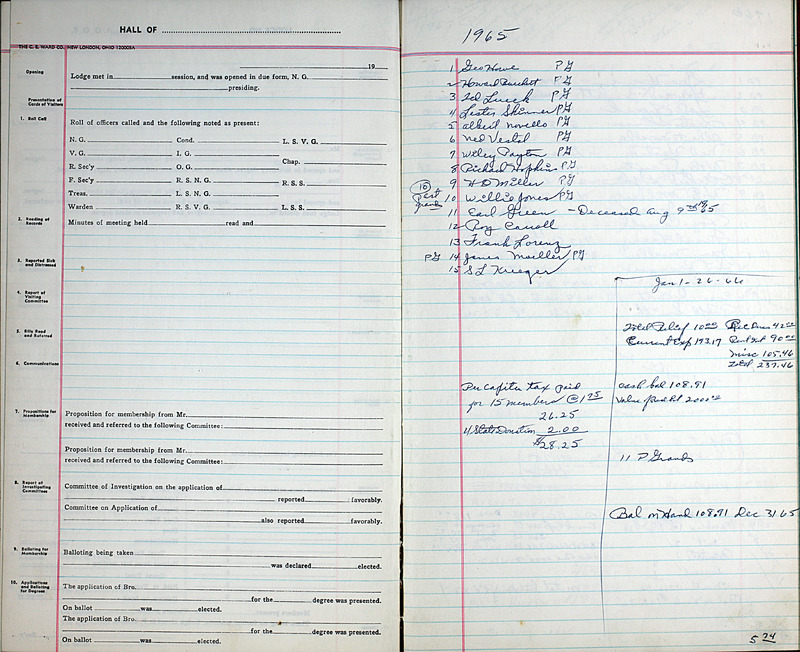 HALL OF
THE C. E. WARD CO. NEW LONDON, OHIO 12000SA
19
Opening
Lodge met in session, and was opened in due form, N. G.
presiding.
Presentation of Cards of Visitors
1. Roll Call
Roll of officers called and the following noted as present:
N. G. Cond. L. S. V. G.
V. G. I. G. Chap.
R. Sec'y O. G.
F. Sec'y R. S. N. G. R. S. S.
Treas. L. S. N. G.
Warden R. S. V. G. L. S. S.
2. Reading of Records
Minutes of meeting held read and
3. Reported Sick and Distressed
4. Report of Visiting Committee
5. Bills Read and Referred
6. Communications
7. Propositions for Membership
Proposition for membership from Mr.
received and referred to the following Committee:
Proposition for membership from Mr.
received and referred to the following Committee:
8. Report of Investigating Committees
Committee of Investigation on the application of
reported favorably.
Committee on Application of
also reported favorably.
9. Balloting for Membership
Balloting being taken
was declared elected.
10. Applications and Balloting for Degrees
The application of Bro.
for the degree was presented.
On ballot was elected.
The application of Bro.
for the degree was presented.
On ballot was elected.
1965
1 Geo Howe PG
2 Howard Burchet PG
3 Ed Luck PG
4 Lester Skinner PG
5 Albert Novello PG
6 Ned Vestal PG
7 Wiley Payton PG
8 Richard Hopkins PG
9 H D Miller PG
10 Past Grands
10 Willie Jones PG
11 Earl Green - Deceased Aug 9 1965
12 Roy Carroll
13 Frank Lorenz
PG 14 James Moeller PG
15 S L Krieger
Jan 1-26-66
Total Relief 10.00 Rec Dues 42.00
Current Exp 193.17 Rent 90.00
Misc 105.46
Total 237.46
Per Capita tax paid
for 15 members @ 1.75
26.25
Donation 2.00
$28.25
Cash bal 108.91
11 P Grands
Bal on Hand 108.91 Dec 31 65
5 74